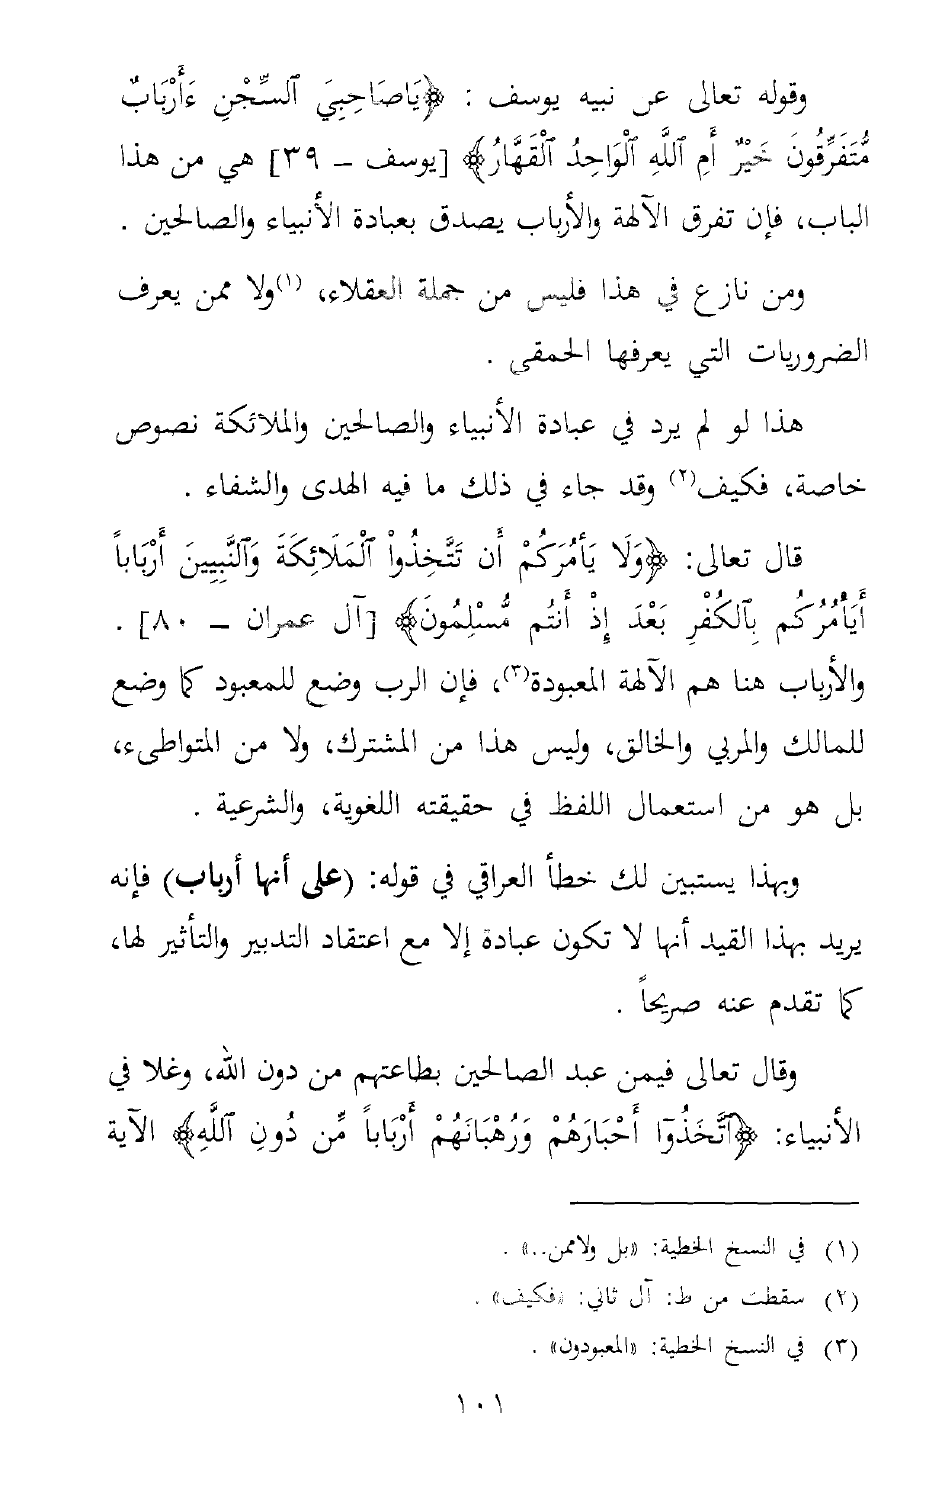 وقوله تعالى عن نبيه يوسف : ﴿يَاصَاحِبَيِ ٱلسِّجْنِ ءَأَرْبَابٌ
مُّتَفَرِّقُونَ خَيْرٌ أَمِ ٱللَّهِ ٱلْوَاحِدُ ٱلْقَهَّارُ﴾ [يوسف ـ ٣٩] هي من هذا
الباب، فإن تفرق الآلهة والأرباب يصدق بعبادة الأنبياء والصالحين .
ومن نازع في هذا فليس من جملة العقلاء، (١)ولا ممن يعرف
الضروريات التي يعرفها الحمقى .
هذا لو لم يرد في عبادة الأنبياء والصالحين والملائكة نصوص
خاصة، فكيف(٢) وقد جاء في ذلك ما فيه الهدى والشفاء .
قال تعالى: ﴿وَلَا يَأْمُرَكُمْ أَن تَتَّخِذُواْ ٱلْمَلَائِكَةَ وَٱلنَّبِيِينَ أَرْبَاباً
أَيَأْمُرُكُم بِٱلكُفْرِ بَعْدَ إِذْ أَنتُم مُّسْلِمُونَ﴾ [آل عمران ـ ٨٠] .
والأرباب هنا هم الآلهة المعبودة(٣)، فإن الرب وضع للمعبود كما وضع
للمالك والمربي والخالق، وليس هذا من المشترك، ولا من المتواطىء،
بل هو من استعمال اللفظ في حقيقته اللغوية، والشرعية .
وبهذا يستبين لك خطأ العراقي في قوله: (على أنها أرباب) فإنه
يريد بهذا القيد أنها لا تكون عبادة إلا مع اعتقاد التدبير والتأثير لها،
كما تقدم عنه صريحاً .
وقال تعالى فيمن عبد الصالحين بطاعتهم من دون الله، وغلا في
الأنبياء: ﴿ٱتَّخَذُوٓا أَحْبَارَهُمْ وَرُهْبَانَهُمْ أَرْبَاباً مِّن دُونِ ٱللَّهِ﴾ الآية
(١) في النسخ الخطية: «بل ولاممن..» .
(٢) سقطت من ط: آل ثاني: «فكيف» .
(٣) في النسخ الخطية: «المعبودون» .
١٠١